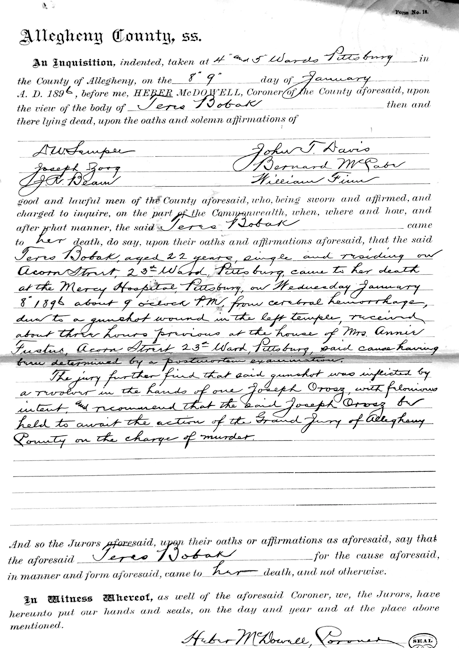 Form No. 14
Allegheny County, ss.
An Inquisition, indented, taken at 4th and 5 Wards Pittsburg in
the County of Allegheny, on the 8" 9" day of January
A. D. 1896, before me, HEBER McDOWELL, Coroner of the County aforesaid, upon
the view of the body of Teres Bobak then and
there lying dead, upon the oaths and solemn affirmations of
John T Davis
Joseph Zorg Bernard McCabe
J. R. Beam William Finn
good and lawful men of the County aforesaid, who, being sworn and affirmed, and
charged to inquire, on the part of the Commonwealth, when, where and how, and
after what manner, the said Teres Bobak came
to her death, do say, upon their oaths and affirmations aforesaid, that the said
Teres Bobak, aged 22 years, single and residing on
Acorn Street, 23d Ward, Pittsburg, came to her death
at the Mercy Hospital Pittsburg, on Wednesday January
8" 1896 about 9 oclock P.M. from cerebral hemorrhage,
due to a gunshot wound in the left temple, received
about three hours previous at the house of Mrs. Annie
Acorn Street 23d Ward, Pittsburg, said cause having
been determined by a postmortem examination.
The jury further find that said gunshot was inflicted by
a revolver in the hands of one Joseph Orosz, with felonious
intent and recommend that the said Joseph Orosz be
held to await the action of the Grand Jury of Allegheny
County on the charge of murder.
And so the Jurors aforesaid, upon their oaths or affirmations as aforesaid, say that
the aforesaid Teres Bobak for the cause aforesaid,
in manner and form aforesaid, came to her death, and not otherwise.
In Witness Whereof, as well of the aforesaid Coroner, we, the Jurors, have
hereunto put our hands and seals, on the day and year and at the place above
mentioned.
Heber McDowell, Coroner SEAL